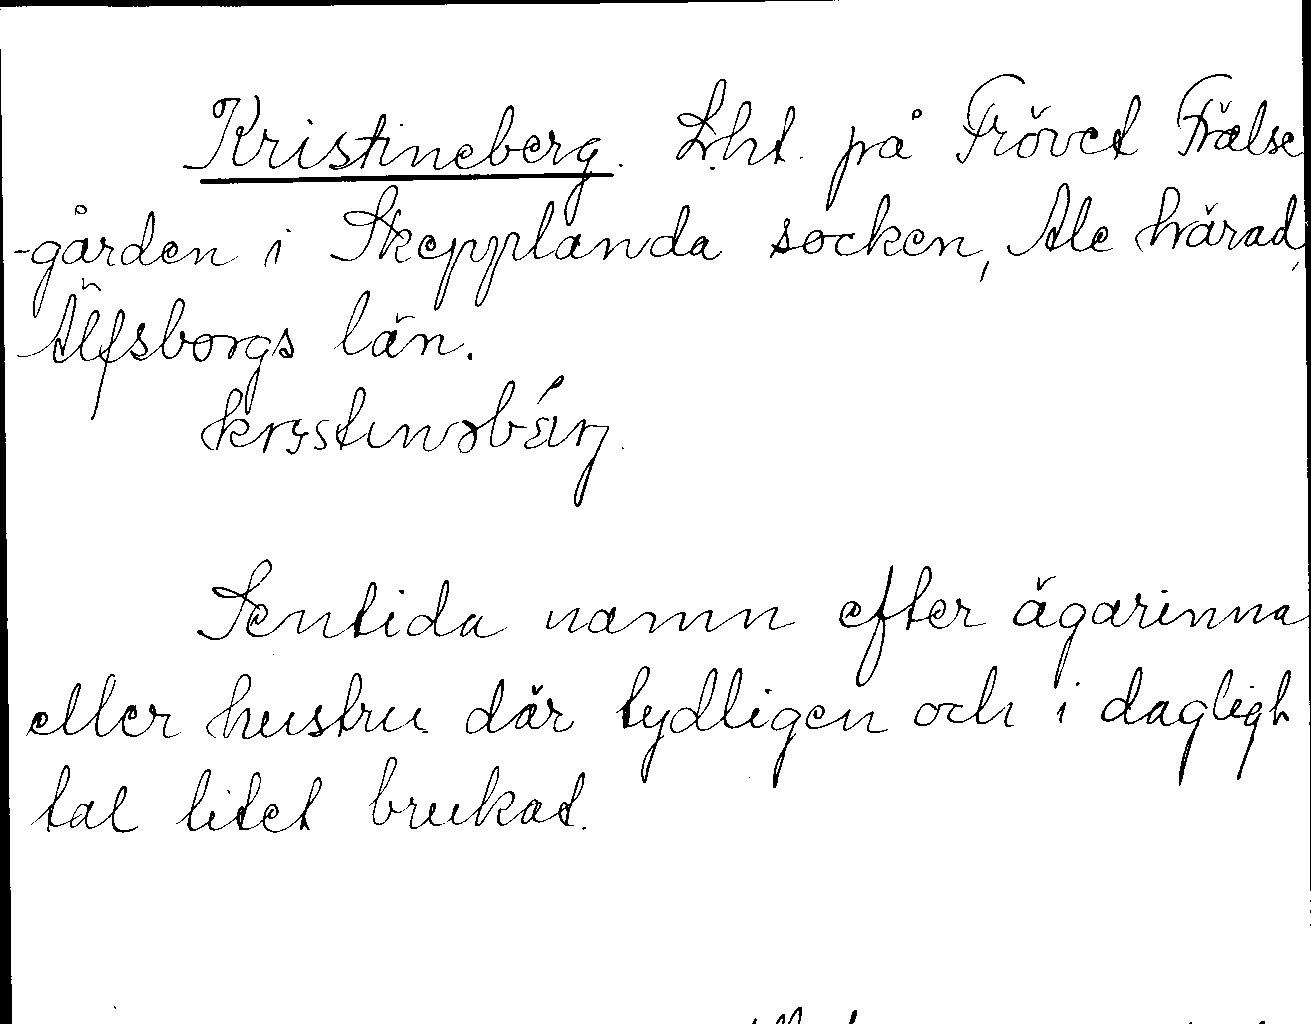 Kristineberg. Lht. på Frövet Frälse
-gården i Skepplanda socken, Ale härad,
Älfsborgs län.
Sentida namn efter ägarinna
eller hustru där tydligen och i dagligt
tal litet brukat.